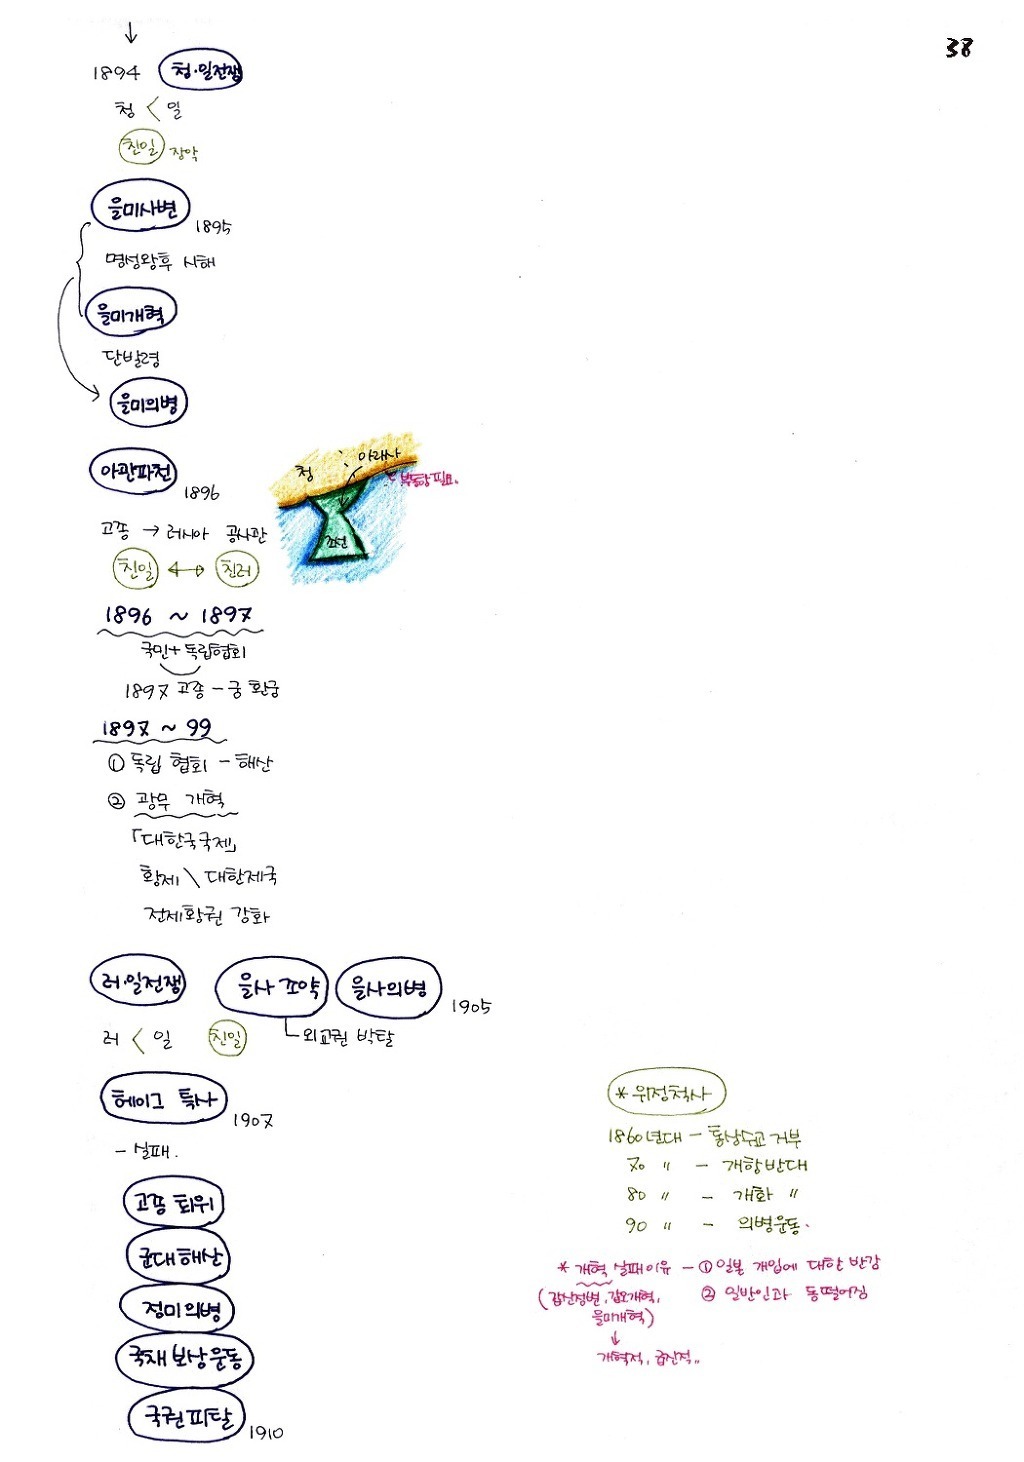 38
1894 청·일전쟁
청 < 일
친일 장악
을미사변 1895
명성왕후 시해
을미개혁
단발령
을미의병
아관파천 1896
청 아래사
부동항 필요.
조선
고종 → 러시아 공사관
친일 ↔ 친러
1896 ~ 1897
국민+독립협회
1897 고종 - 궁 환궁
1897 ~ 99
① 독립 협회 - 해산
② 광무 개혁
「대한국국제」
황제 \ 대한제국
전제황권 강화
러·일전쟁 을사조약 을사의병 1905
러 < 일 친일 외교권 박탈
헤이그 특사 1907
- 실패.
고종 퇴위
군대해산
정미의병
국채보상운동
국권피탈 1910
* 위정척사
1860년대 - 통상수교 거부
70 〃 - 개항반대
80 〃 - 개화 〃
90 〃 - 의병운동.
* 개혁 실패이유 - ① 일본 개입에 대한 반감
(갑신정변, 갑오개혁, ② 일반인과 동떨어짐
을미개혁)
↓
개혁적, 급진적..